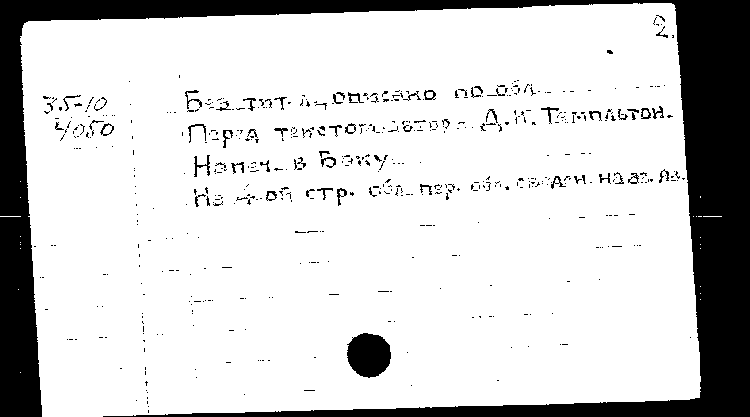 2.
35-10
4050
Без тит. л., описано по обл.
Перед текстом автор: Д.К. Темпльтон.
Напеч. в Баку
На 4-ой стр. обл. пер. обл. сведен. на аз. яз.